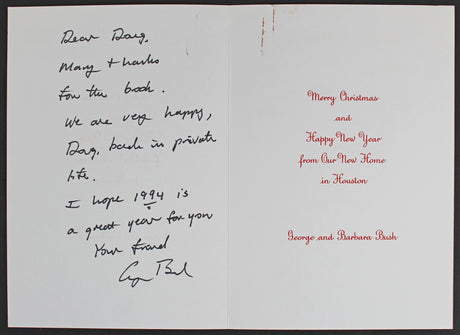 Dear Doug,
Many thanks
for the book.
We are very happy,
Doug, back in private
life.
I hope 1994 is
a great year for you
Your friend
George Bush
Merry Christmas
and
Happy New Year
from Our New Home
in Houston
George and Barbara Bush